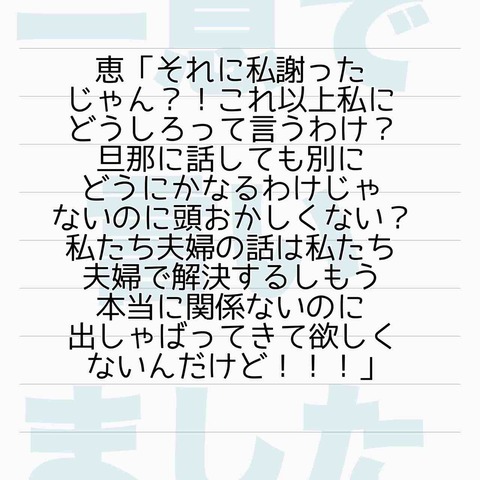 一息で
恵「それに私謝った
じゃん？！これ以上私に
どうしろって言うわけ？
旦那に話しても別に
どうにかなるわけじゃ
ないのに頭おかしくない？
私たち夫婦の話は私たち
夫婦で解決するしもう
本当に関係ないのに
出しゃばってきて欲しく
ないんだけど！！！」
ました